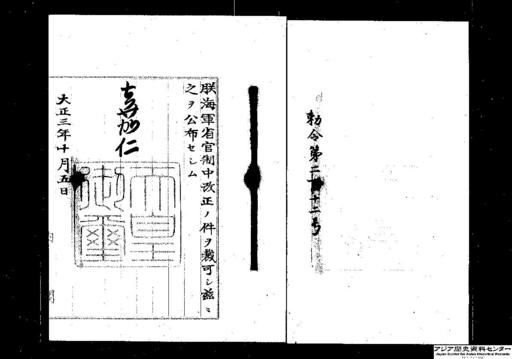 勅令第二百十二号
朕海軍省官制中改正ノ件ヲ裁可シ茲ニ
之ヲ公布セシム
嘉仁
天皇
御璽
大正三年十月五日
内閣
アジア歴史資料センター
Japan Center for Asian Historical Records